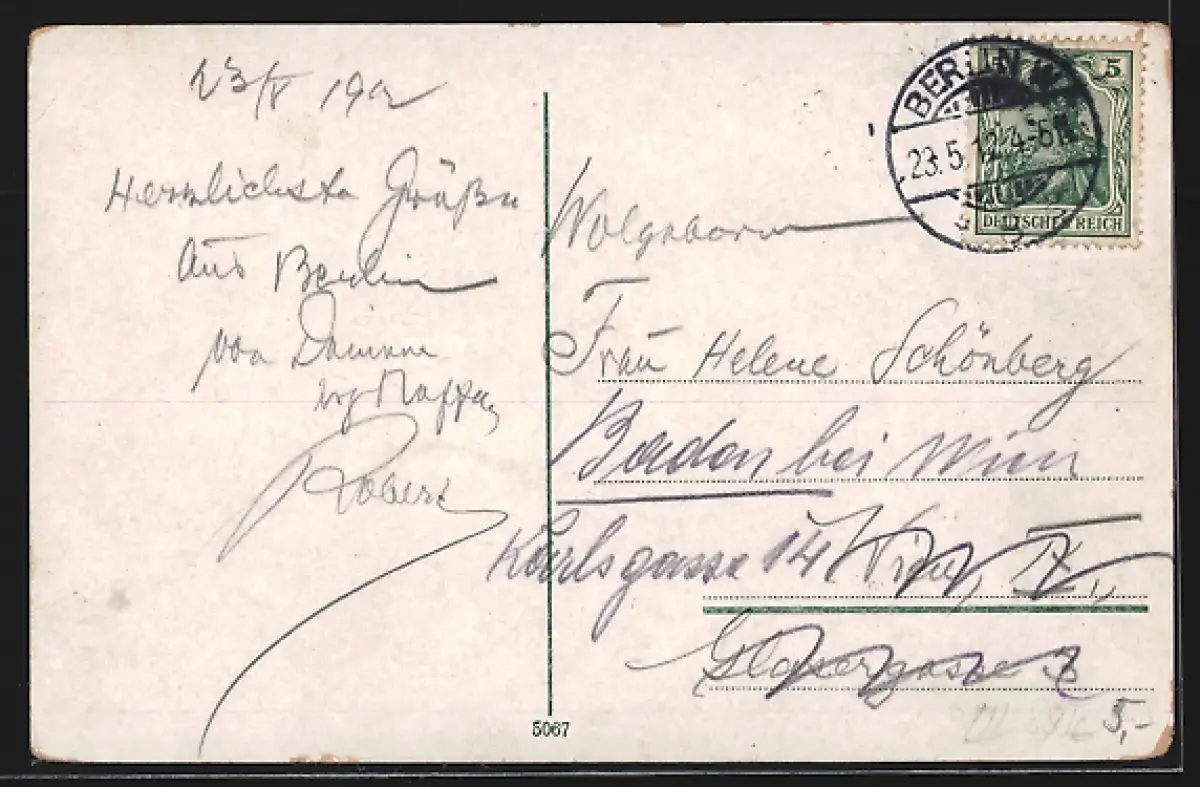 23/V 1912
Herzlichste Grüße
aus Berlin
von Deinem
Neffen
Robert
Wolgeboren
Frau Helene Schönberg
Baden bei Wien
Karlsgasse 14 Wien, IX.,
5067
5,-
BERLIN W
23.5.12.4-5N.
5
DEUTSCHES REICH